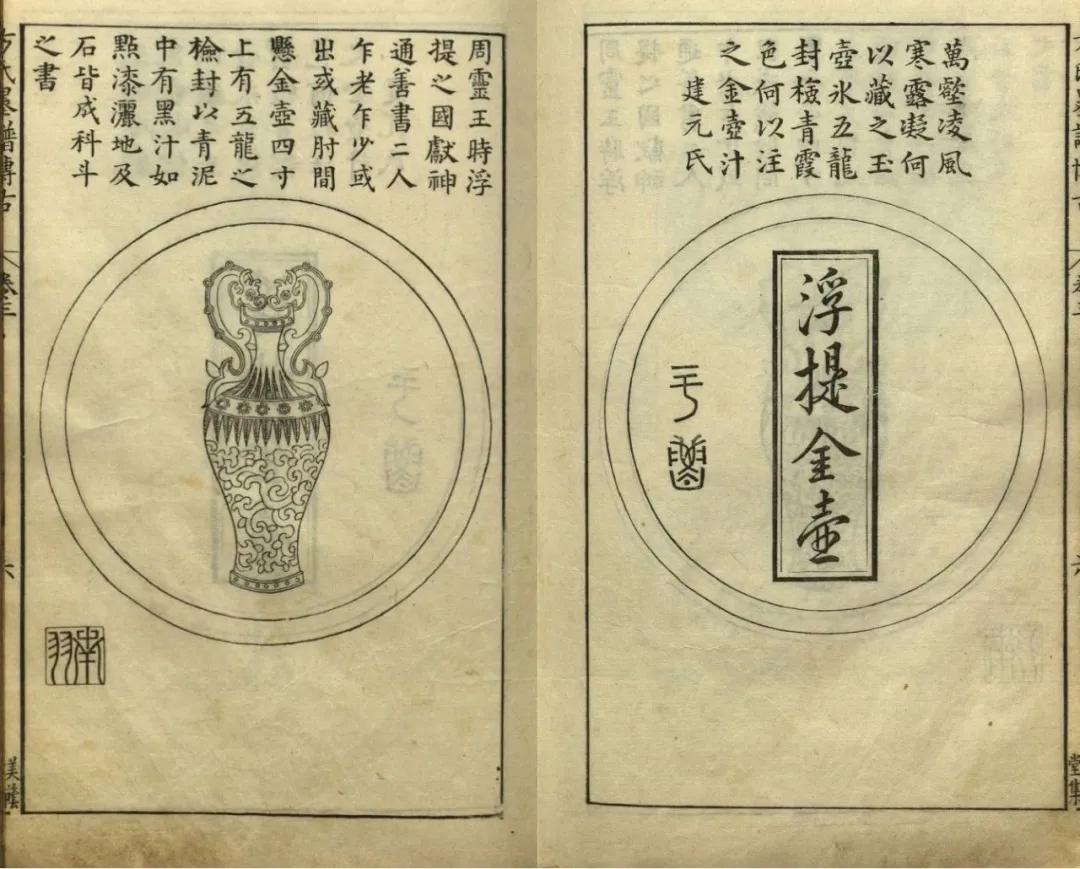 萬壑凌風
寒露凝何
以藏之玉
壺氷五龍
封檢青霞
色何以注
之金壺汁
建元氏
浮提金壺
于魯
周靈王時浮
提之國獻神
通善書二人
乍老乍少或
出或藏肘間
懸金壺四寸
上有五龍之
檢封以青泥
中有黑汁如
點漆灑地及
石皆成科斗
之書
南羽
方氏墨譜博古
卷三
六
美蔭